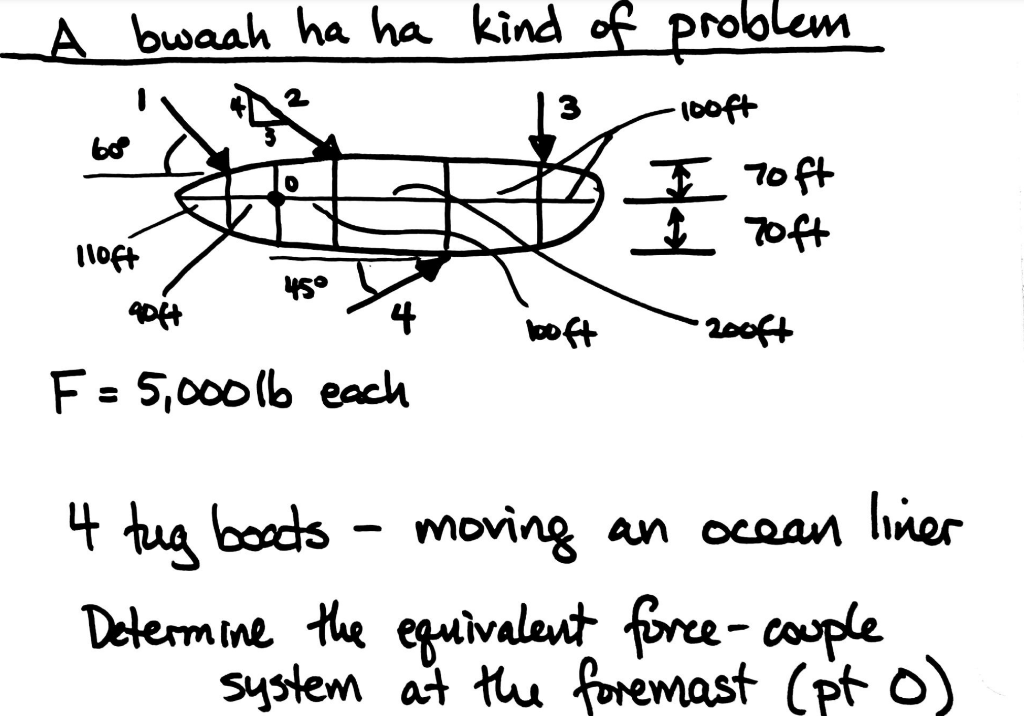 A bwaah ha ha kind of problem
1
4
2
3
3
100ft
60°
0
70 ft
70ft
110ft
45°
90ft
4
100ft
200ft
F = 5,000lb each
4 tug boats - moving an ocean liner
Determine the equivalent force-couple
system at the foremast (pt O)